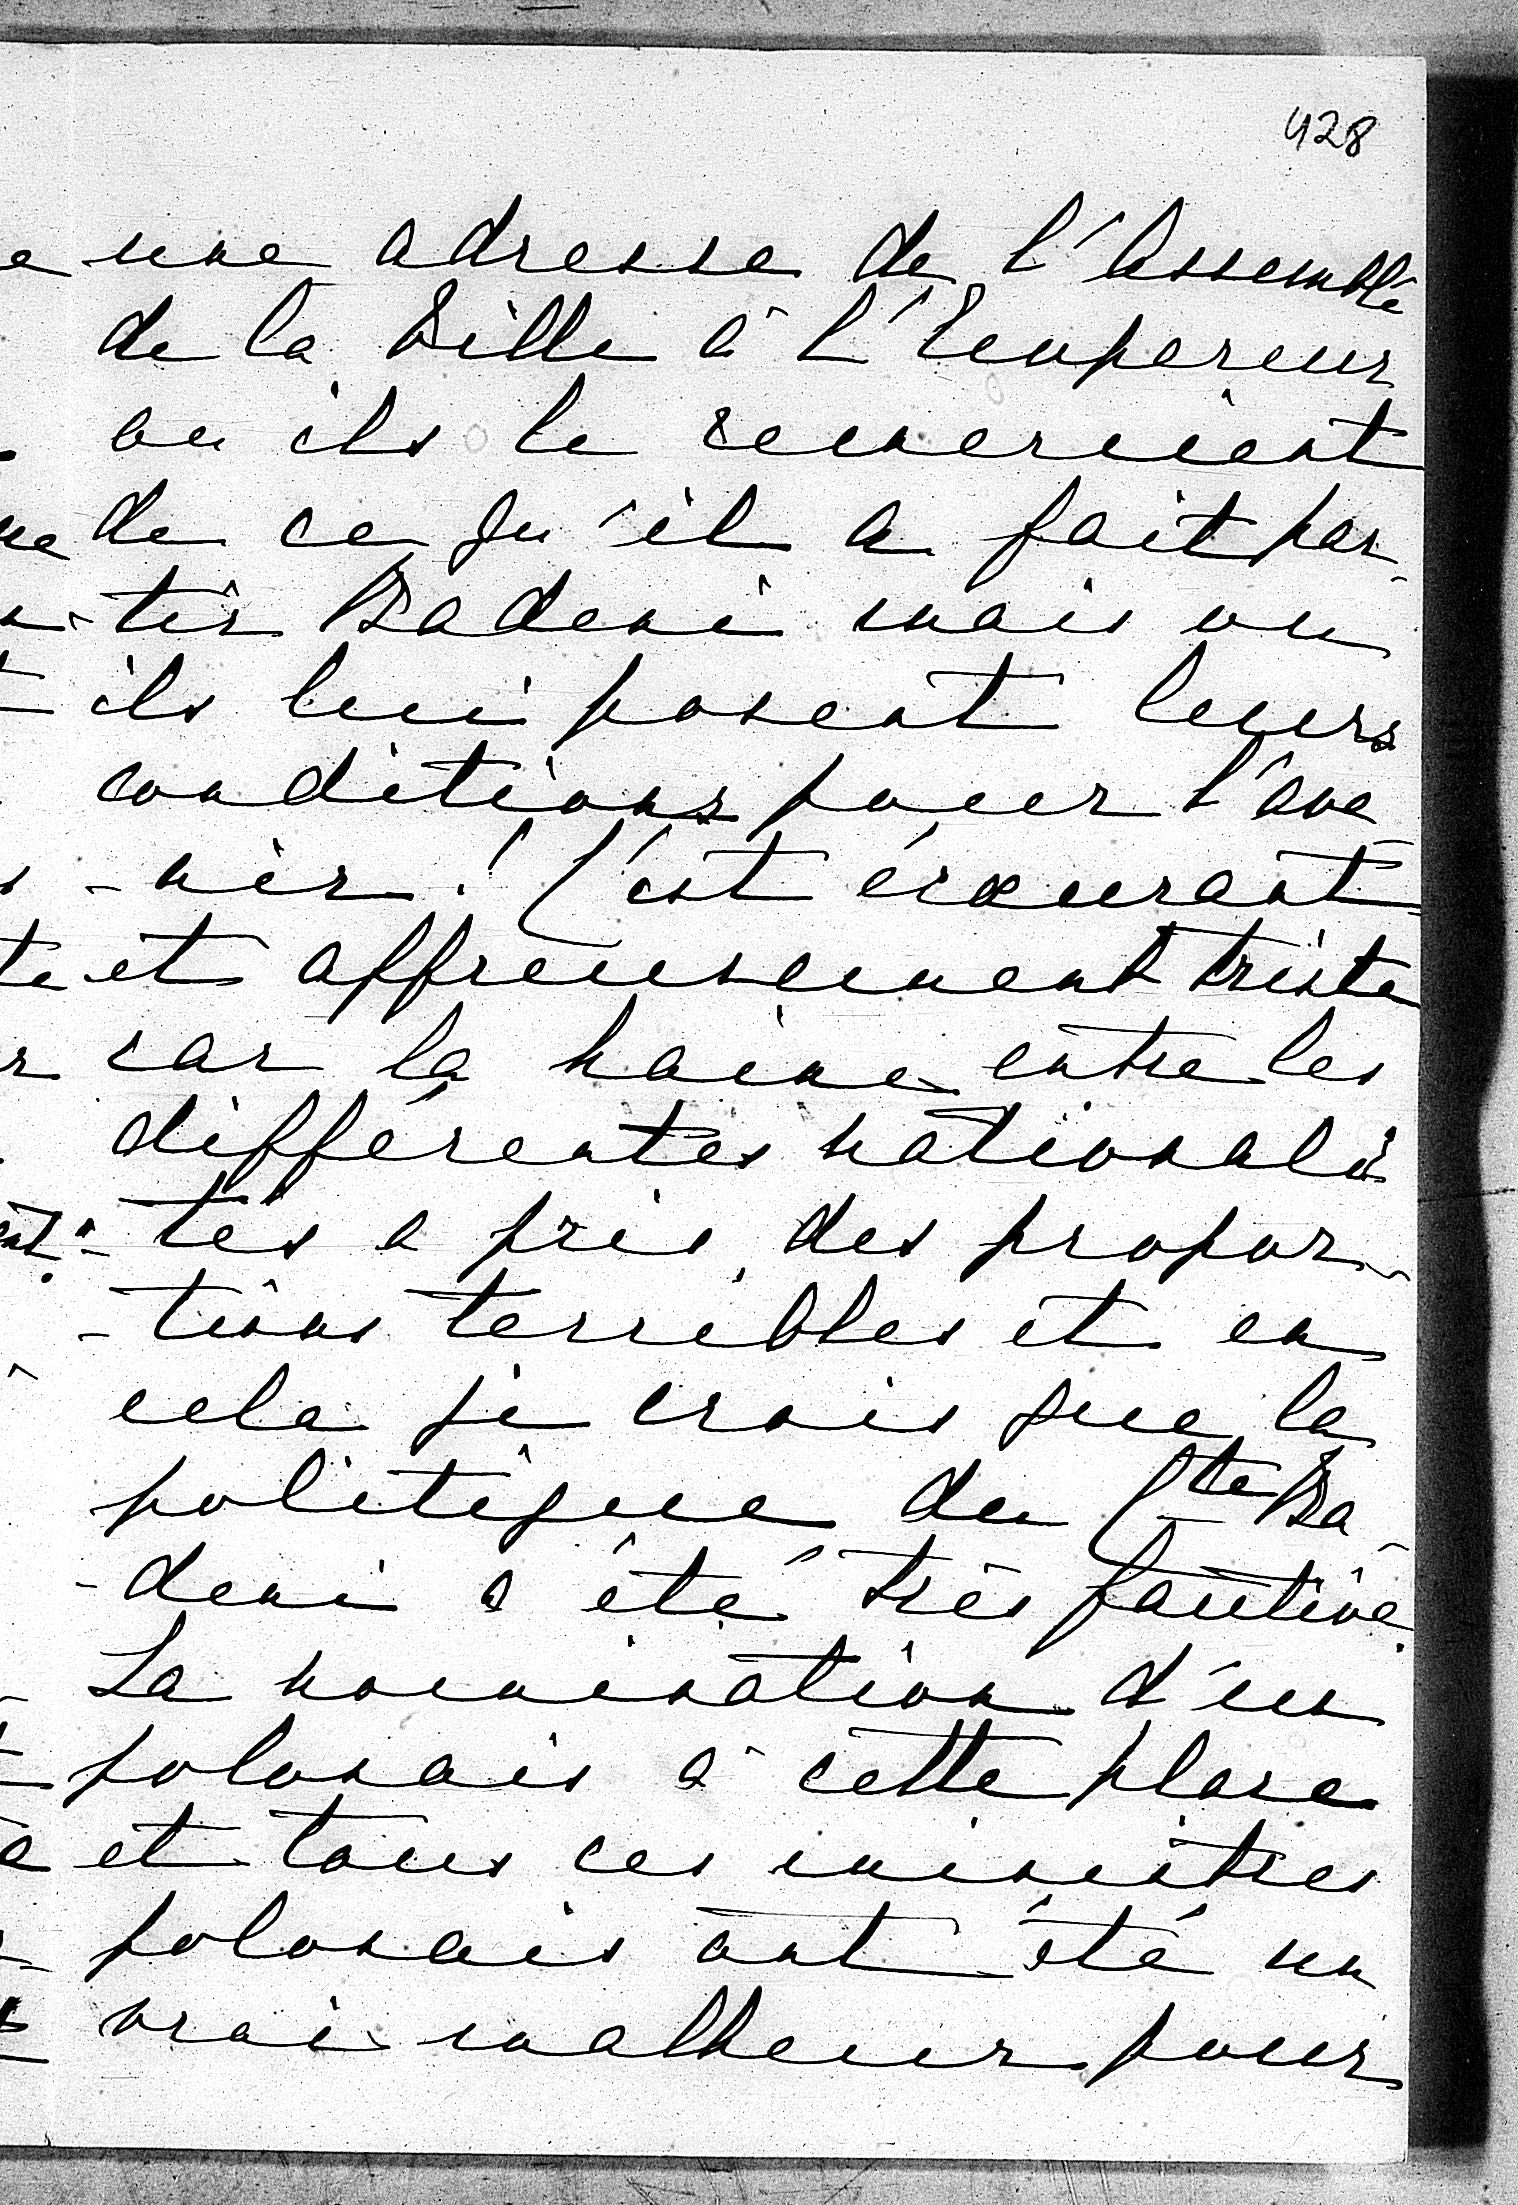 428
une adresse de l'Assemblé
de la Ville à l'Empereur
ou ils le remercient
de ce qu'il a fait par-
-tir Badeni mais ou
ils lui posent leurs
conditions pour l'ave-
-nir! C'est écœurant
et affreusement triste
car la haine entre les
différentes nationali-
-tés a pris des propor-
-tions terribles et en
cela je crois que la
politique du Cte Ba-
-deni a été très fautive.
La nomination d'un
polonais à cette place
et tous ces ministres
polonais ont été un
vrai malheur pour